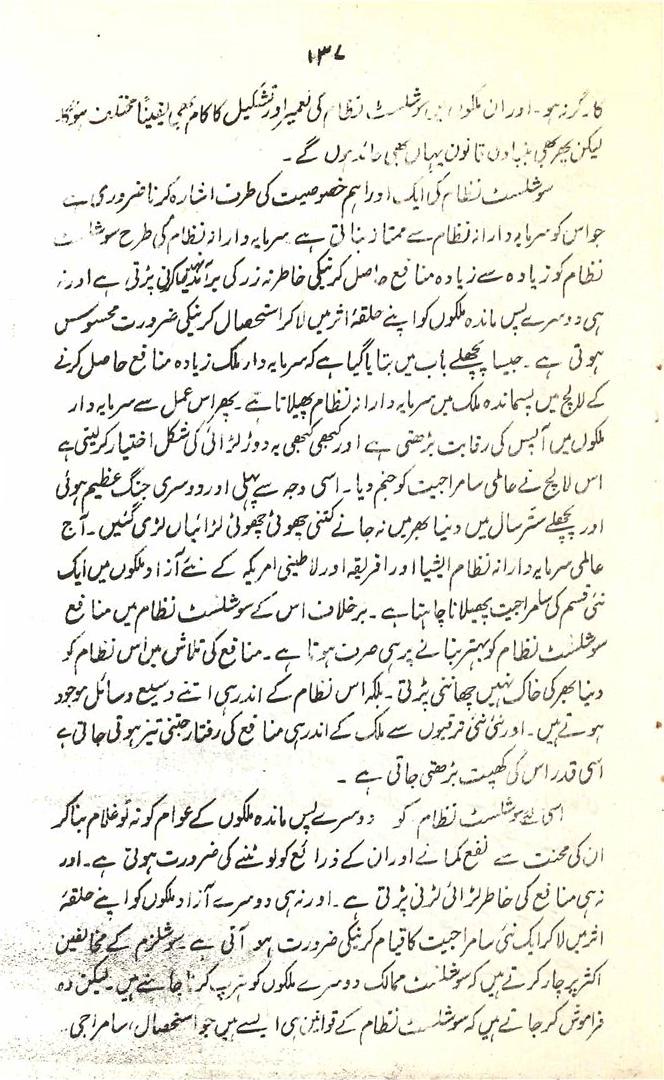 ۱۳۷
کارگر نہ ہو۔ اور ان ملکوں میں سوشلسٹ نظام کی تعمیر اور تشکیل کا کام بھی یقیناً مختلف ہوگا۔
لیکن پھر بھی بنیادی قانون یہاں بھی عائد ہوں گے۔
سوشلسٹ نظام کی ایک اور اہم خصوصیت کی طرف اشارہ کرنا ضروری ہے
جو اس کو سرمایہ دارانہ نظام سے ممتاز بناتی ہے سرمایہ دارانہ نظام کی طرح سوشلسٹ
نظام کو زیادہ سے زیادہ منافع حاصل کرنیکی خاطر نہ زر کی برآمد نہیں کرنی پڑتی ہے اور نہ
ہی دوسرے پس ماندہ ملکوں کو اپنے حلقۂ اثر میں لاکر استحصال کرنیکی ضرورت محسوس
ہوتی ہے۔ جیسا پچھلے باب میں بتایا گیا ہے کہ سرمایہ دار ملک زیادہ منافع حاصل کرنے
کے لالچ میں پسماندہ ملک میں سرمایہ دارانہ نظام پھیلاتا ہے۔ پھر اس عمل سے سرمایہ دار
ملکوں میں آپس کی رقابت بڑھتی ہے اور کبھی کبھی یہ دوڑ لڑائی کی شکل اختیار کرلیتی ہے
اس لالچ نے عالمی سامراجیت کو جنم دیا۔ اسی وجہ سے پہلی اور دوسری جنگ عظیم ہوئی
اور پچھلے ستر سال میں دنیا بھر میں نہ جانے کتنی چھوٹی چھوٹی لڑائیاں لڑی گئیں۔ آج
عالمی سرمایہ دارانہ نظام ایشیا اور افریقہ اور لاطینی امریکہ کے نئے آزاد ملکوں میں ایک
نئی قسم کی سامراجیت پھیلانا چاہتا ہے۔ برخلاف اس کے سوشلسٹ نظام میں منافع
سوشلسٹ نظام کو بہتر بنانے پر ہی صرف ہوتا ہے۔ منافع کی تلاش میں اس نظام کو
دنیا بھر کی خاک نہیں چھاننی پڑتی۔ بلکہ اس نظام کے اندر ہی اتنے وسیع وسائل موجود
ہوتے ہیں۔ اور نئی نئی ترقیوں سے ملک کے اندر ہی منافع کی رفتار جتنی تیز ہوتی جاتی ہے
اسی قدر اس کی کھپت بڑھتی جاتی ہے۔
اسی لئے سوشلسٹ نظام کو دوسرے پس ماندہ ملکوں کے عوام کو نہ تو غلام بناکر
ان کی محنت سے نفع کمانے اور ان کے ذرائع کو لوٹنے کی ضرورت ہوتی ہے۔ اور
نہ ہی منافع کی خاطر لڑائی لڑنی پڑتی ہے۔ اور نہ ہی دوسرے آزاد ملکوں کو اپنے حلقۂ
اثر میں لاکر ایک نئی سامراجیت کا قیام کرنیکی ضرورت ہو آتی ہے۔ سوشلزم کے مخالفین
اکثر پرچار کرتے ہیں کہ سوشلسٹ ممالک دوسرے ملکوں کو ہڑپ کرنا چاہتے ہیں۔ لیکن وہ
فراموش کر جاتے ہیں کہ سوشلسٹ نظام کے قوانین ہی ایسے ہیں جو استحصال، سامراجی